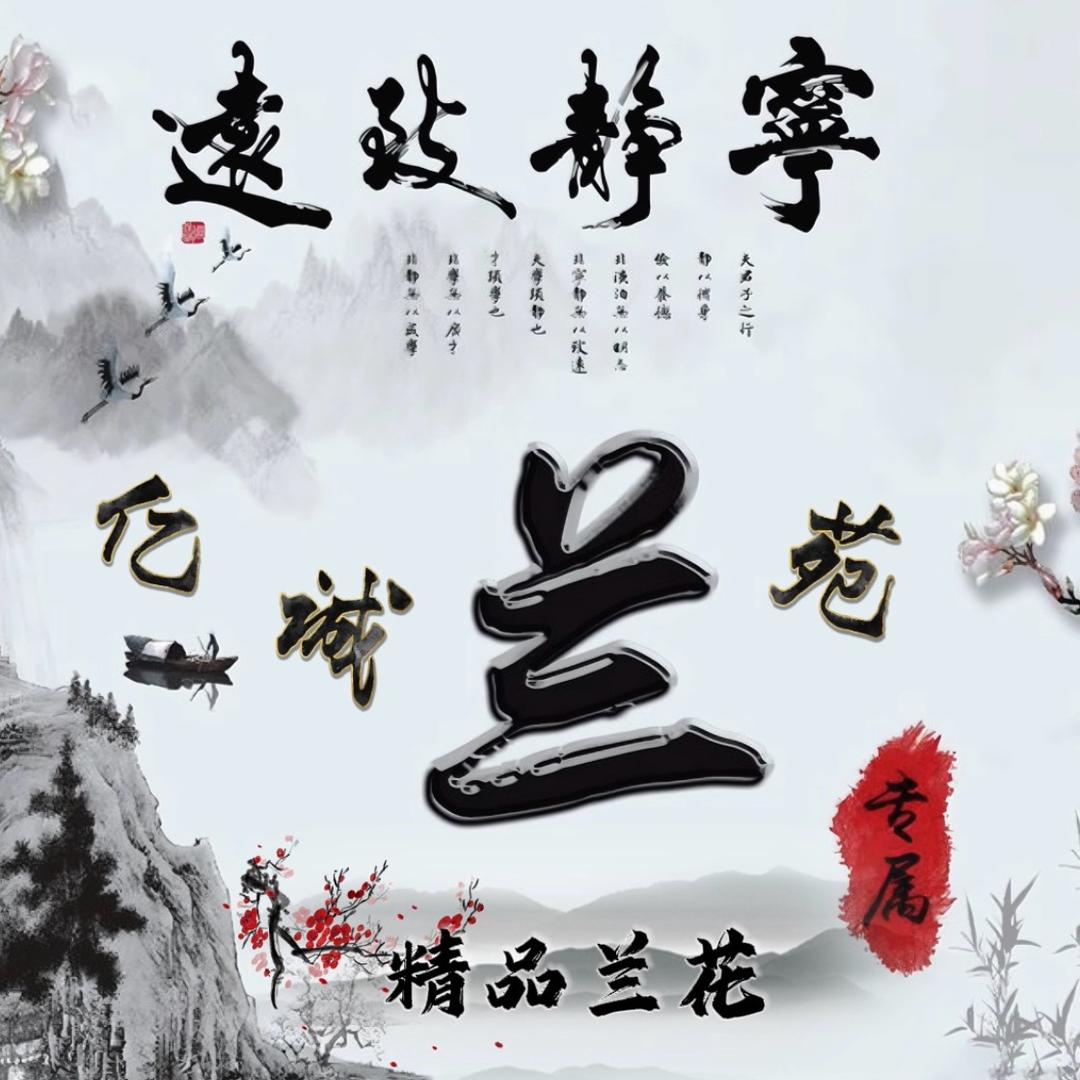 寧静致遠
夫君子之行
静以修身
儉以養德
非澹泊無以明志
非寧静無以致遠
夫學須静也
才須學也
非學無以廣才
非静無以成學
亿城兰苑
专属
精品兰花